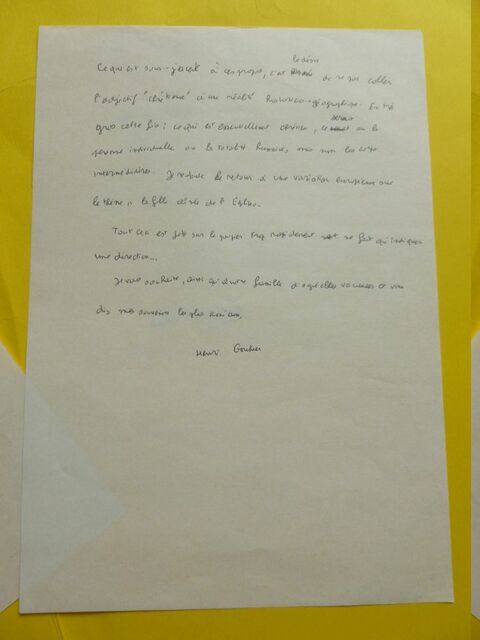 le désir
Ce qui est sous-jacent à ces propos, c'est de ne pas coller
l'adjectif "chrétienne" à une réalité historico-géographique. En très
gros cette fois : ce qui est essentiellement chrétien, ce sera ou la
personne individuelle ou la totalité humaine, mais non les
intermédiaires. Je redoute le retour à une variation européenne sur
le thème "la fille aînée de l'Église".
Tout ceci est jeté sur le papier trop rapidement et ne fait qu'indiquer
une direction...
Je vous souhaite, ainsi qu'à votre famille d'agréables vacances et vous
dis mes souvenirs les plus amicaux.
Henri Gouhier